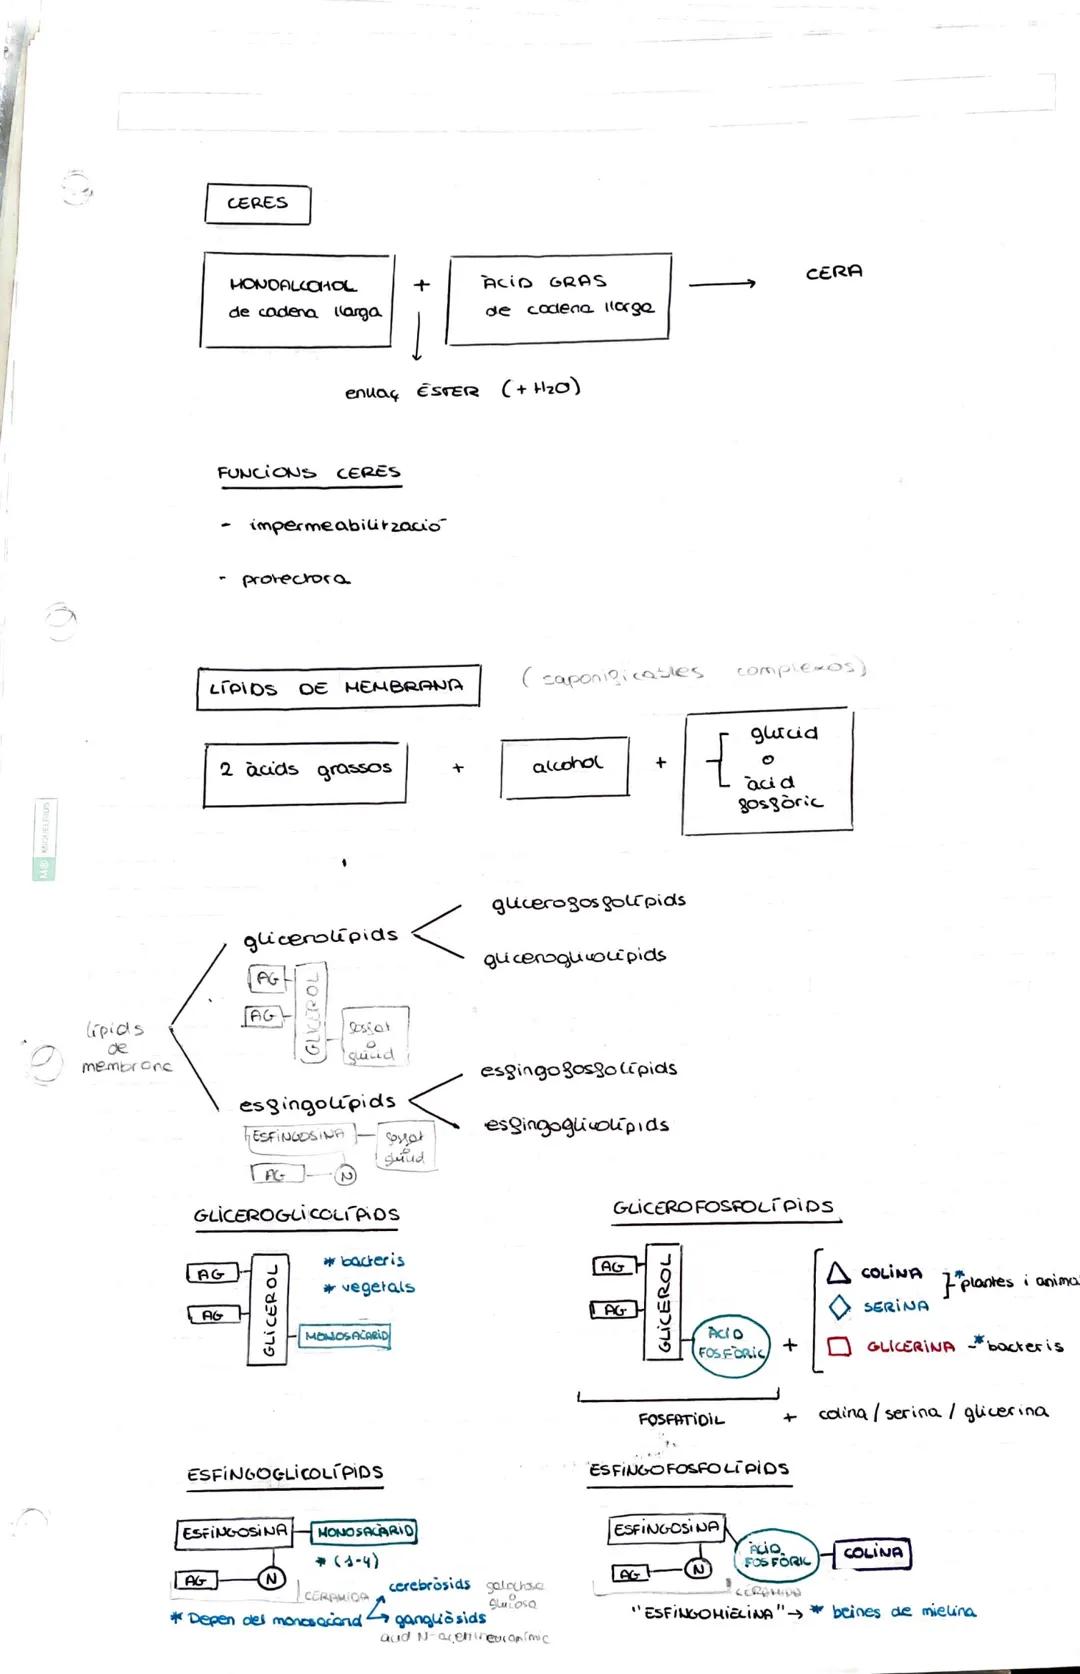 CERES
MONOALCOHOL
de cadena llarga
+
ÀCID GRAS
de cadena llarga
CERA
enllaç ÈSTER (+ H2O)
FUNCIONS CERES
- impermeabilització
- protectora
LÍPIDS DE MEMBRANA
(saponificables complexos)
2 àcids grassos
+
alcohol
+
glúcid
o
àcid
fosfòric
lípids
de
membrana
glicerolípids
glicerofosfolípids
gliceroglicolípids
AG
AG
GLICEROL
fosfat
o
glúcid
esfingolípids
esfingofosfolípids
esfingoglicolípids
ESFINGOSINA
fosfat
o
glúcid
AG
N
MIQUELRIUS
GLICEROGLICOLÍPIDS
AG
AG
GLICEROL
* bacteris
* vegetals
MONOSACÀRID
GLICEROFOSFOLÍPIDS
AG
AG
GLICEROL
ÀCID
FOSFÒRIC
+
COLINA
SERINA
* plantes i anima
GLICERINA - * bacteris
FOSFATIDIL
+ colina / serina / glicerina
ESFINGOGLICOLÍPIDS
ESFINGOSINA
MONOSACÀRID
* (1-4)
AG
N
CERAMIDA
cerebròsids galactosa
glucosa
* Depen del monosacàrid
gangliòsids
àcid N-acetilneuramínic
ESFINGOFOSFOLÍPIDS
ESFINGOSINA
ÀCID
FOSFÒRIC
COLINA
AG
N
CERAMIDA
"ESFINGOMIELINA" → * beines de mielina